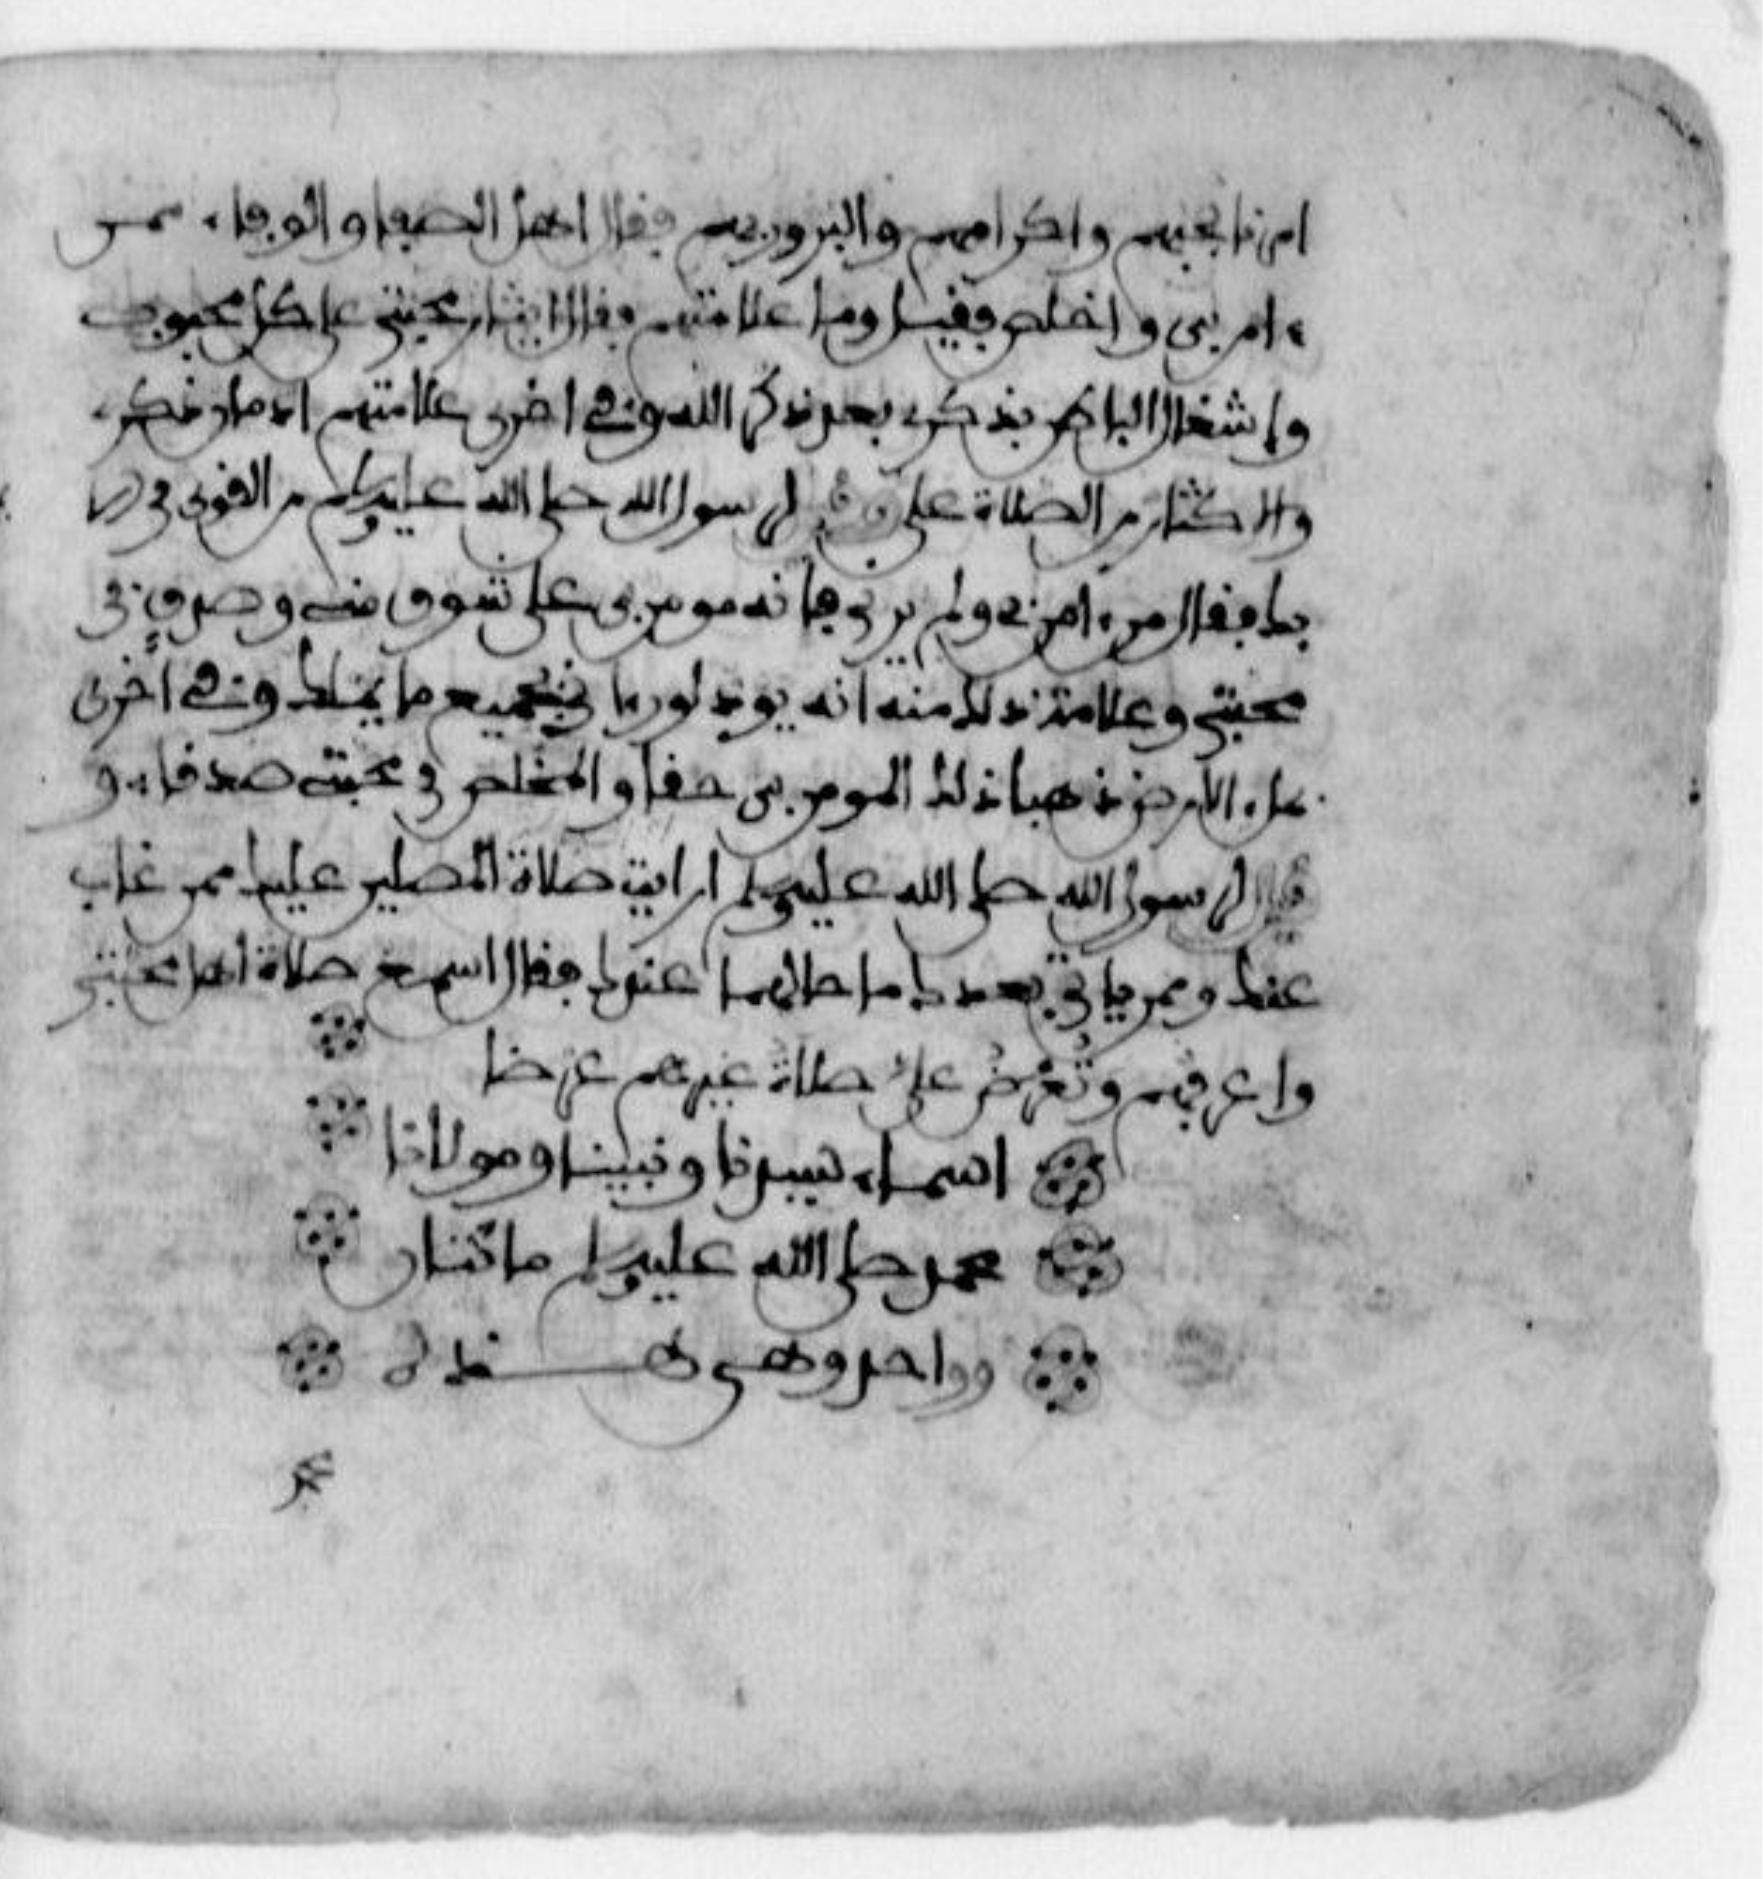 امرنا بحبهم واكرامهم والبرور بهم فقال اهل الصفاء والوفاء من
ءامن بي واخلص فقيل وما علامتهم فقال ايثار محبتي على كل محبوب
واشغال الباطن بذكري بعد ذكر الله وفي اخرى علامتهم ادمان ذكري
والاكثار من الصلاة علي وقيل لرسول الله صلى الله عليه وسلم من القوي في الايمان
بك فقال من ءامن بي ولم يرني فانه مومن بي على شوق منه وصدق في
محبتي وعلامة ذلك منه انه يود لو رءاني بجميع ما يملك وفي اخرى
ملء الارض ذهبا ذلك المومن بي حقا والمخلص في محبتي صدقا و
قيل لرسول الله صلى الله عليه وسلم ارايت صلاة المصلين عليك ممن غاب
عنك وممن ياتي بعدك ما حالهما عندك فقال اسمع صلاة اهل محبتي
واعرفهم وتعرض علي صلاة غيرهم عرضا
اسماء سيدنا ونبينا ومولانا
محمد صلى الله عليه وسلم مائتان
وواحد وهي هذه